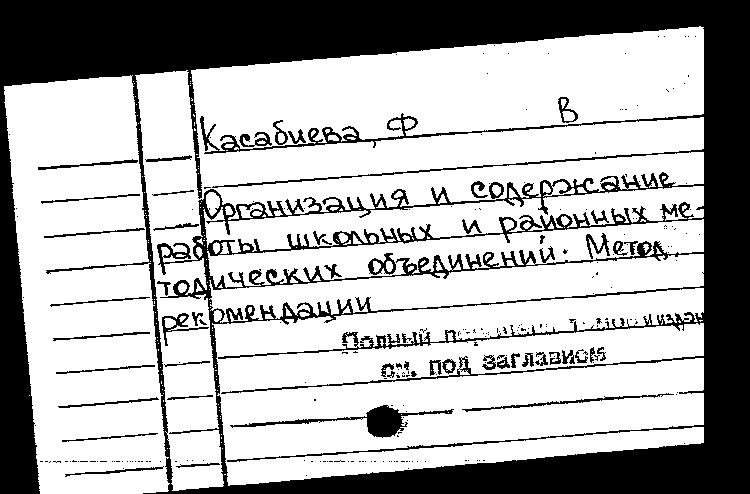 Касабиева, Ф В
Организация и содержание
работы школьных и районных ме-
тодических объединений. Метод.
рекомендации
Полный и издан
см. под заглавием